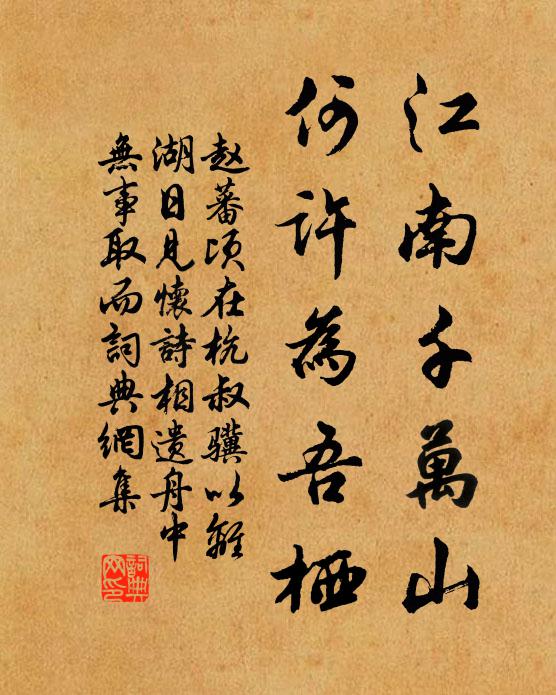 江南千萬山
何許為吾栖
赵蕃頃在杭叔骥以離
湖日見懷詩相遺舟中
無事取而詞典網集
詞典网印